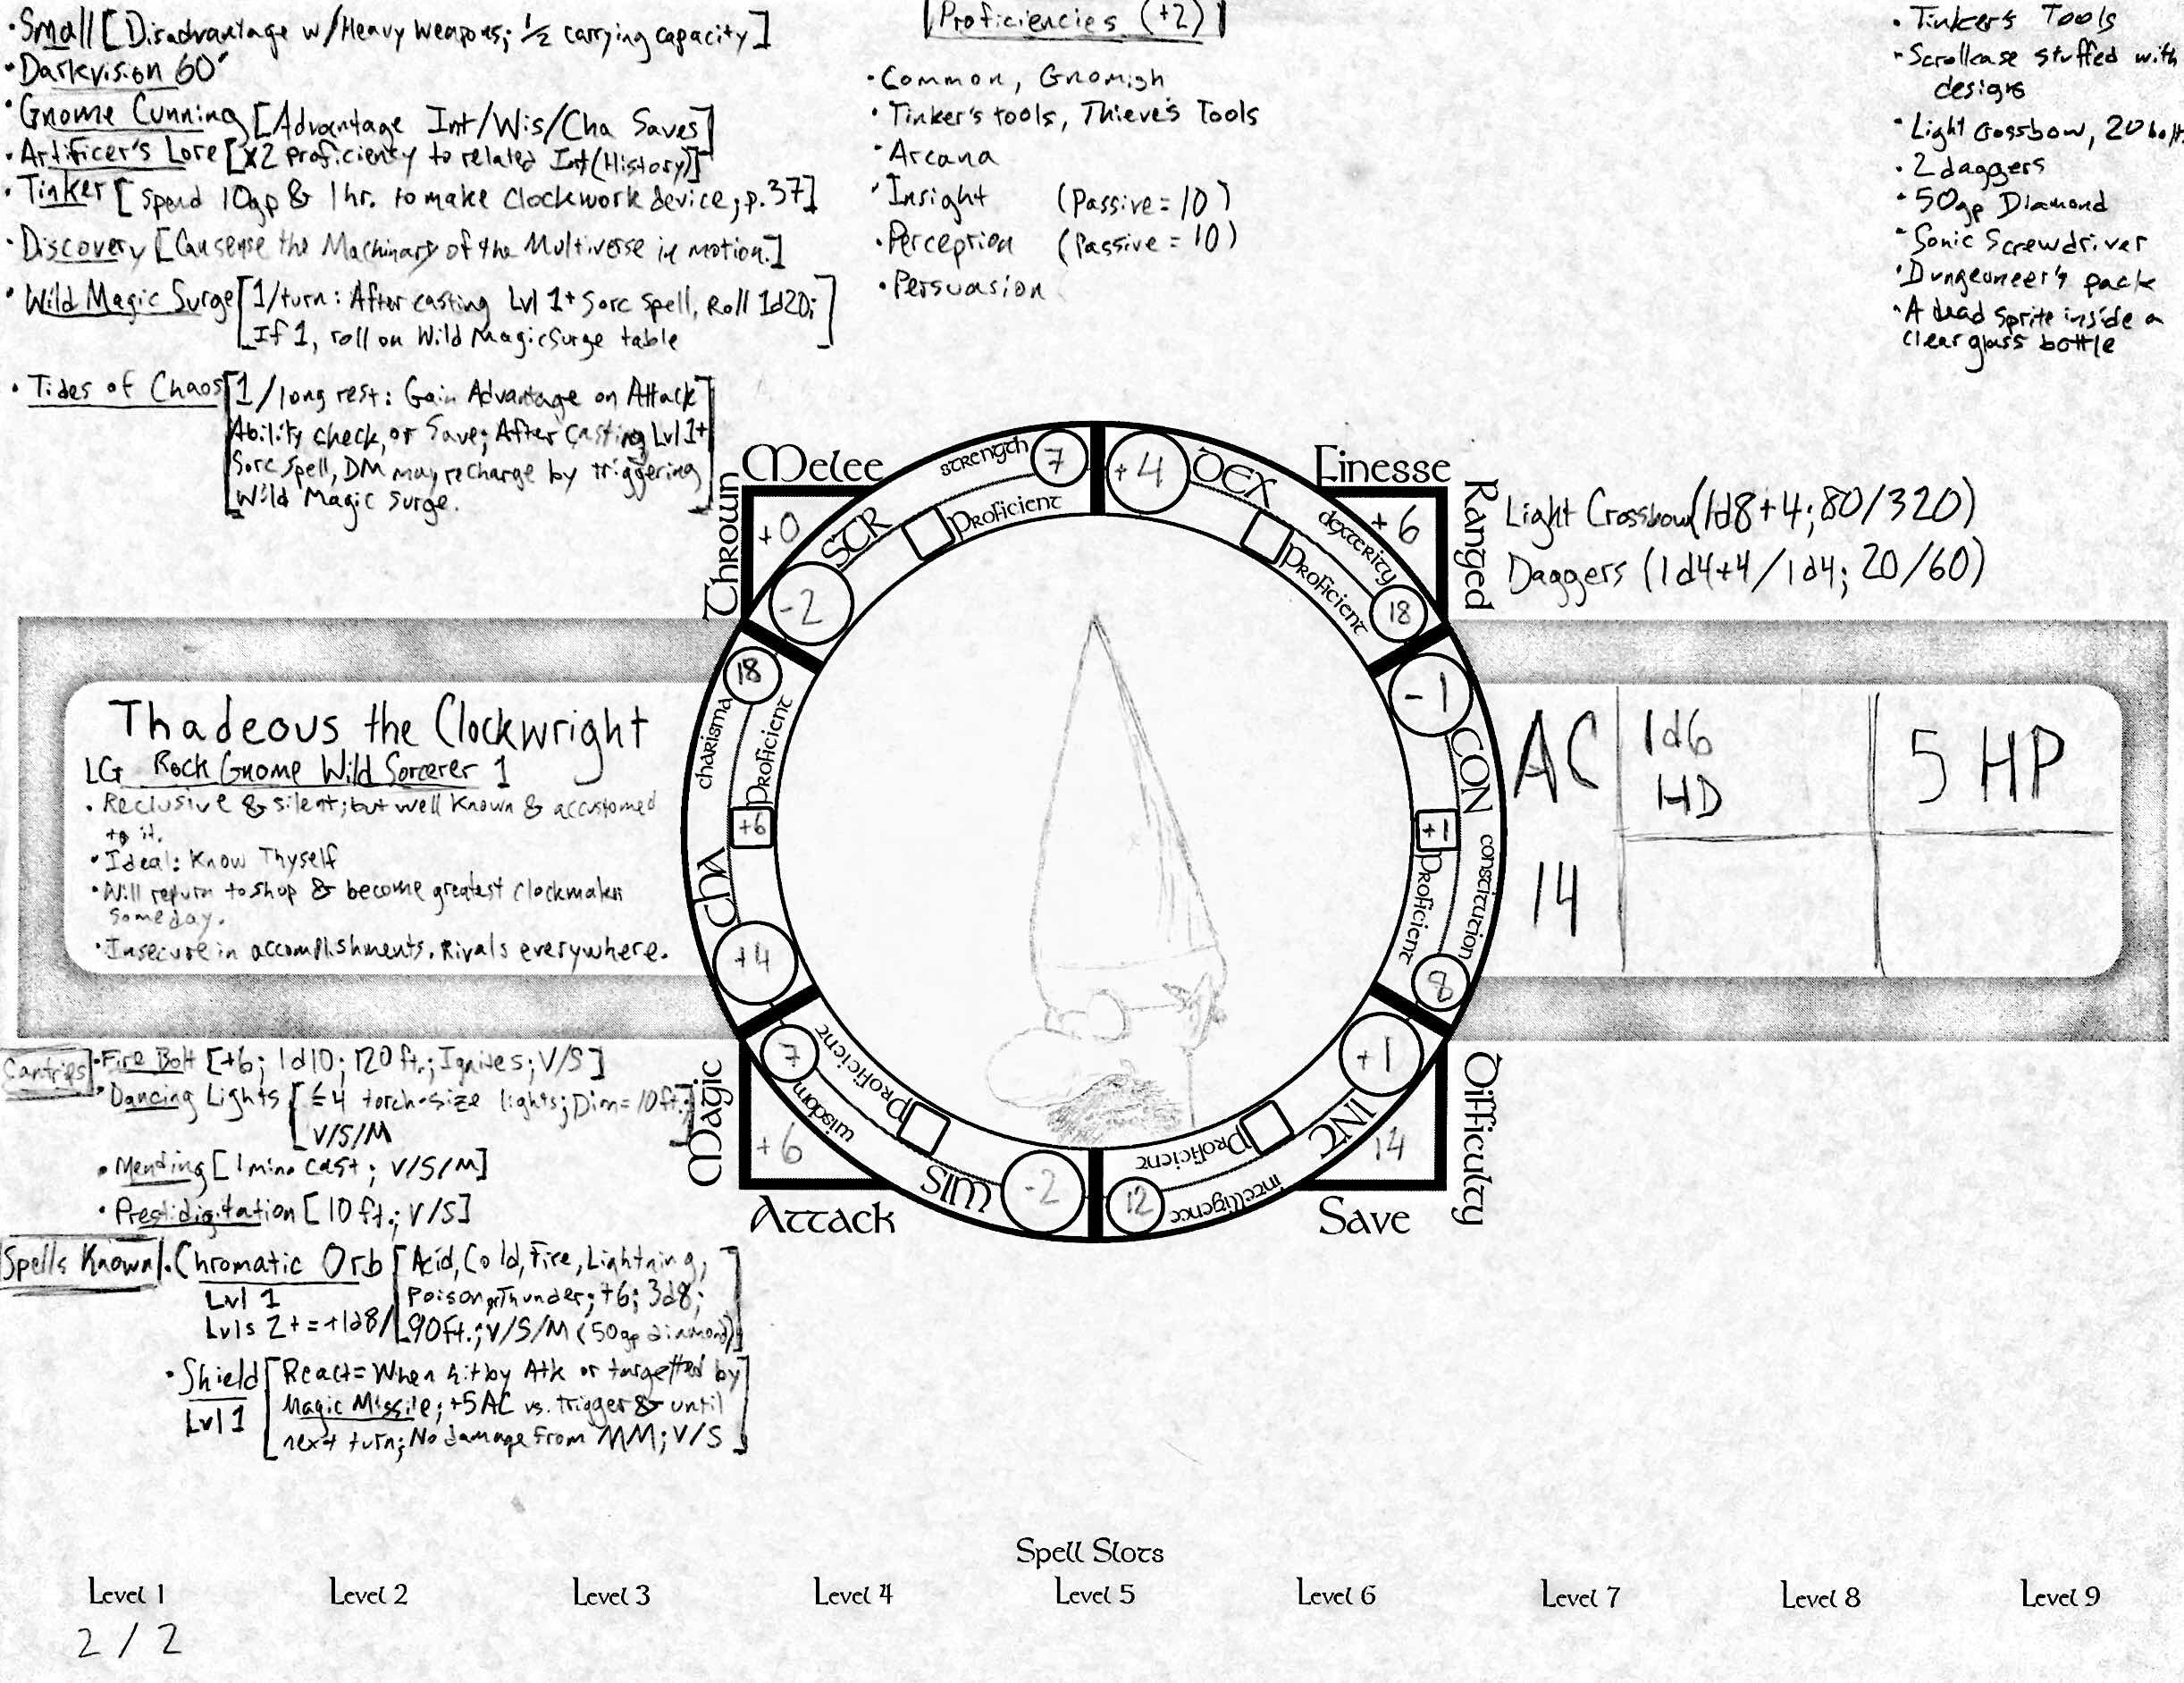 · Small [Disadvantage w/Heavy Weapons; ½ carrying capacity]
· Darkvision 60'
· Gnome Cunning [Advantage Int/Wis/Cha Saves]
· Artificer's Lore [x2 proficiency to related Int(History)]
· Tinker [spend 10gp & 1hr. to make clockwork device; p.37]
· Discovery [Can sense the Machinary of the Multiverse in motion.]
· Wild Magic Surge [1/turn: After casting Lvl 1+ Sorc Spell, Roll 1d20;
If 1, roll on Wild Magic Surge table]
· Tides of Chaos [1/long rest: Gain Advantage on Attack
Ability check, or Save; After casting Lvl 1+
Sorc spell, DM may recharge by triggering
Wild Magic Surge.]
Proficiencies (+2)
· Common, Gnomish
· Tinker's tools, Thieve's Tools
· Arcana
· Insight (Passive = 10)
· Perception (Passive = 10)
· Persuasion
· Tinker's Tools
- Scrollcase stuffed with
designs
· Light Crossbow, 20 bolts
· 2 daggers
· 50gp Diamond
· Sonic Screwdriver
· Dungeoneer's pack
· A dead sprite inside a
clear glass bottle
Melee
Thrown
+0
STR
strength
7
-2
Proficient
Finesse
Ranged
+6
+4
DEX
dexterity
18
Proficient
Light Crossbow (1d8+4; 80/320)
Daggers (1d4+4/1d4; 20/60)
Thadeous the Clockwright
LG Rock Gnome Wild Sorcerer 1
· Reclusive & silent; but well known & accustomed
to it.
· Ideal: Know Thyself
· Will return to shop & become greatest clockmaker
someday.
· Insecure in accomplishments. Rivals everywhere.
18
charisma
Proficient
+6
CHA
+4
-1
CON
constitution
+1
Proficient
8
AC
14
1d6
HD
5 HP
Magic
Attack
+6
7
wisdom
Proficient
WIS
-2
+1
INT
intelligence
12
Proficient
14
Difficulty
Save
Cantrips
· Fire Bolt [+6; 1d10; 120 ft.; Ignites; V/S]
· Dancing Lights [≤4 torch-size lights; Dim=10ft.;
V/S/M]
· Mending [1 min. cast; V/S/M]
· Prestidigitation [10 ft.; V/S]
Spells Known
· Chromatic Orb [Acid, Cold, Fire, Lightning,
Lvl 1
Poison, or Thunder; +6; 3d8;
Lvls 2+ = +1d8/
90ft.; V/S/M (50gp diamond)]
· Shield [React = When hit by Atk or targetted by
Lvl 1
Magic Missile; +5 AC vs. trigger & until
next turn; No damage from MM; V/S]
Spell Slots
Level 1 Level 2 Level 3 Level 4 Level 5 Level 6 Level 7 Level 8 Level 9
2 / 2